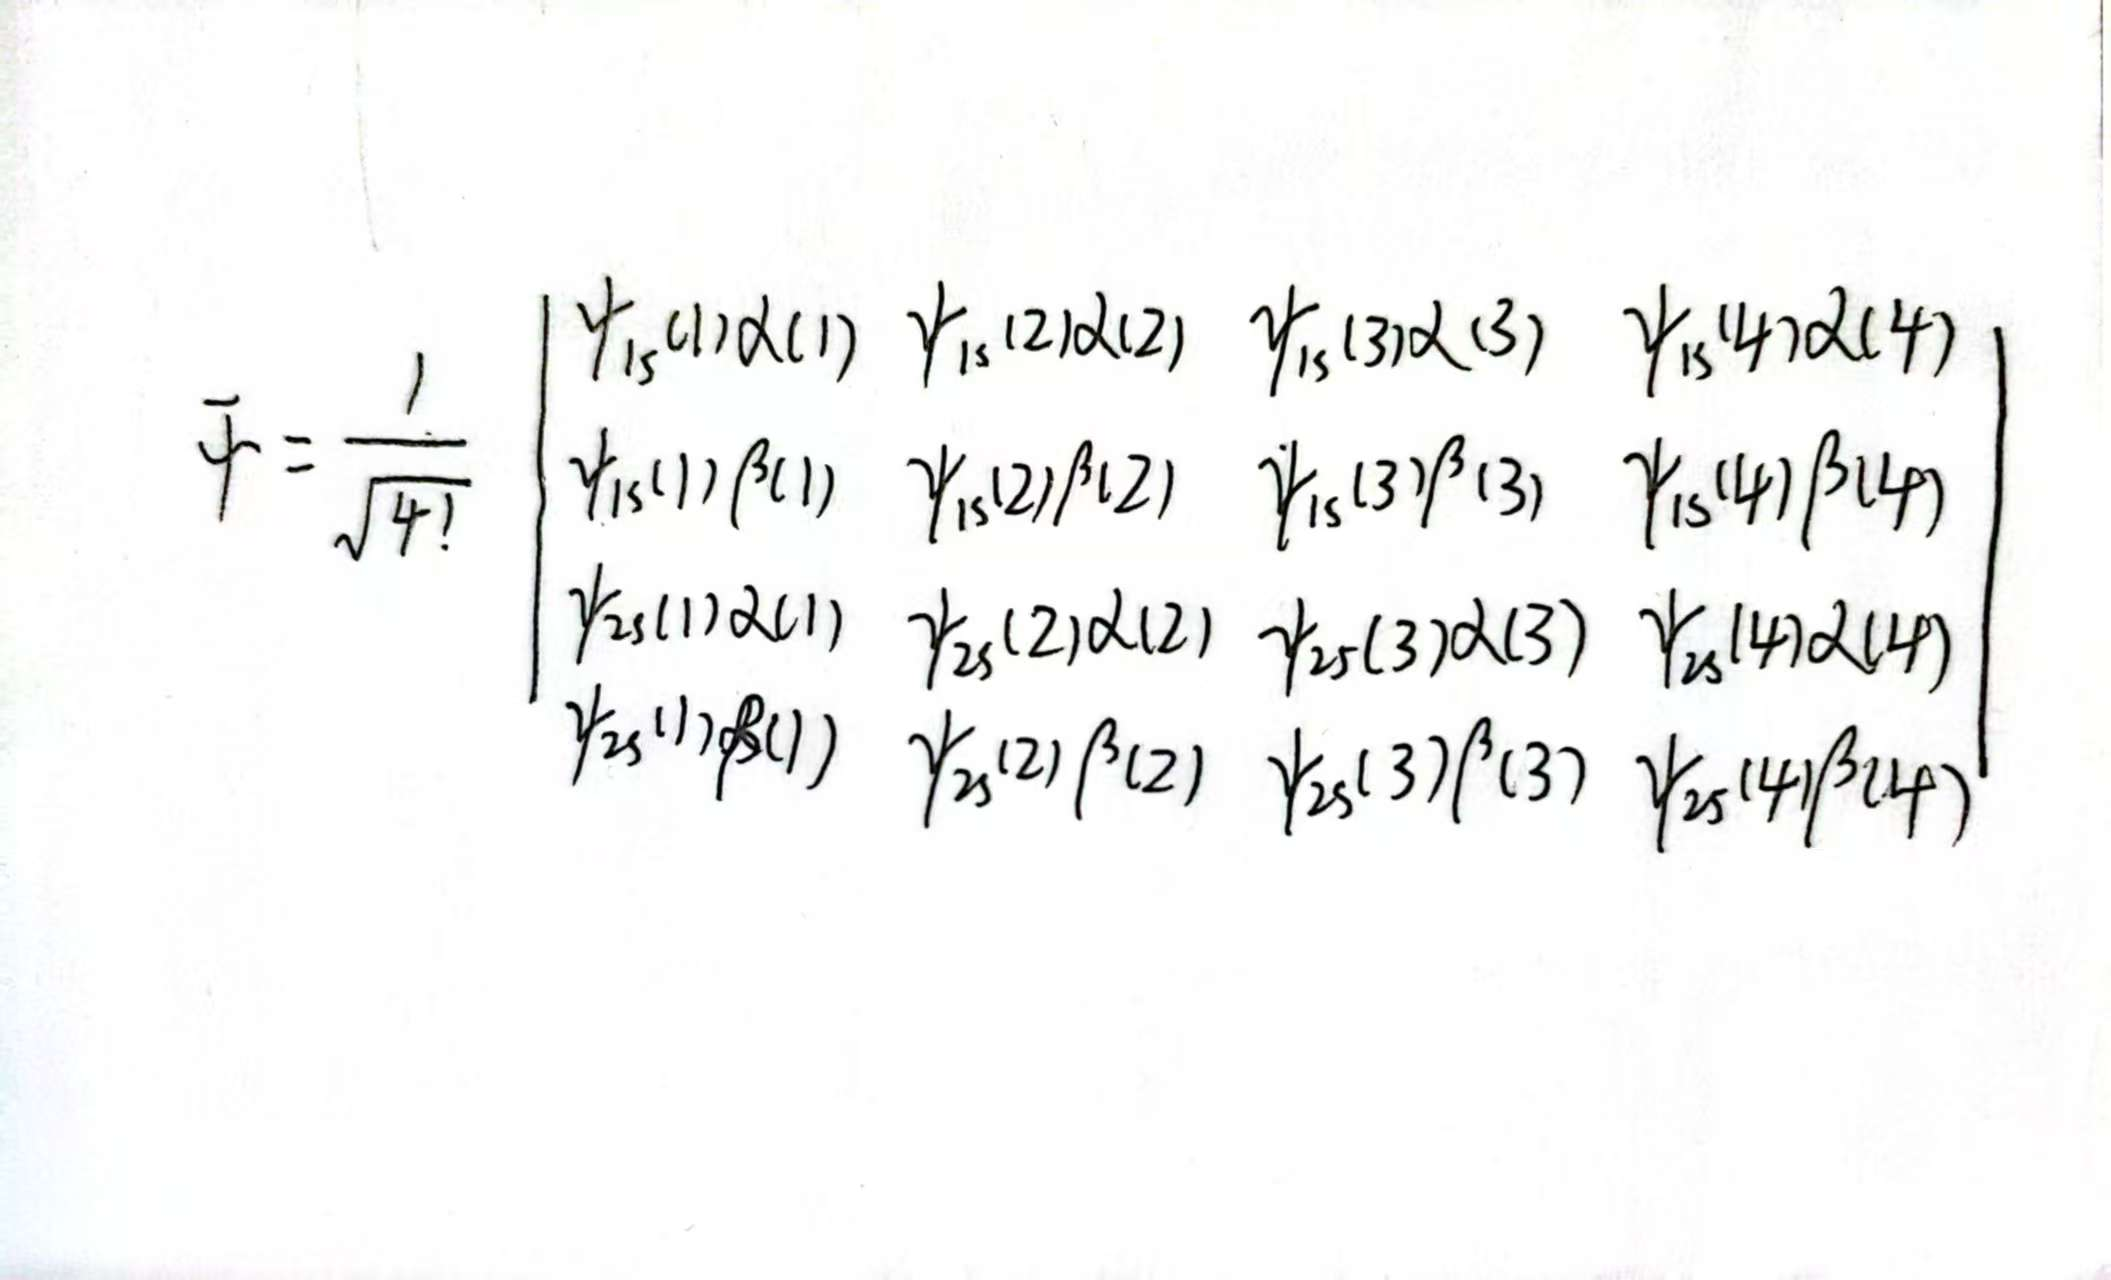 ψ̄ = 1/√4! | ψ1s(1)α(1) ψ1s(2)α(2) ψ1s(3)α(3) ψ1s(4)α(4) |
| ψ1s(1)β(1) ψ1s(2)β(2) ψ1s(3)β(3) ψ1s(4)β(4) |
| ψ2s(1)α(1) ψ2s(2)α(2) ψ2s(3)α(3) ψ2s(4)α(4) |
| ψ2s(1)β(1) ψ2s(2)β(2) ψ2s(3)β(3) ψ2s(4)β(4) |